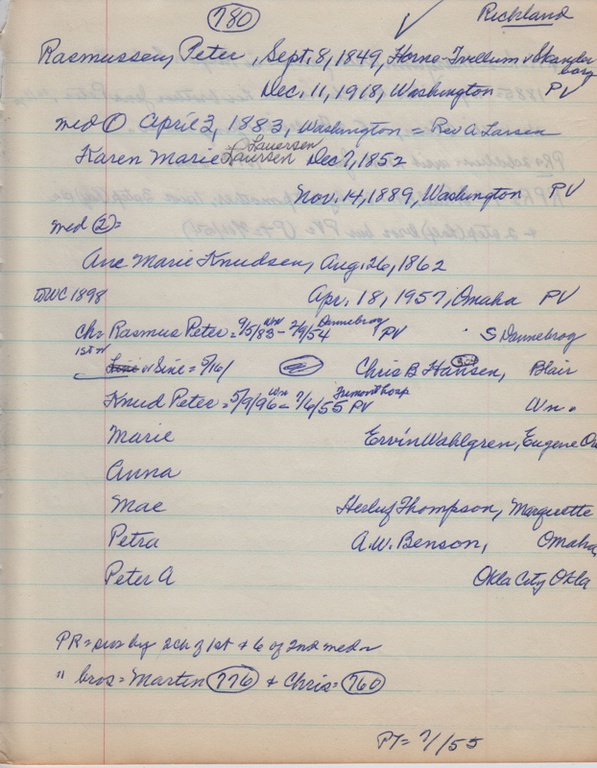 780 ✓ Richland
Rasmussen, Peter, Sept. 8, 1849, Horne-Tvillum v Skander
borg
Dec. 11, 1918, Washington PV
med ① April 3, 1883, Washington = Rev A. Larsen
Lauersen
Karen Marie Laursen Dec 7, 1852
Nov. 14, 1889, Washington PV
med ②=
Ane Marie Knudsen, Aug. 26, 1862
DWC 1898 Apr. 18, 1957, Omaha PV
ch= Rasmus Peter = 9/5/83 Wn - 2/9/54 Dannebrog PV S Dannebrog
1st m
Line or Sine = 5/16/ Chris B Hansen, 304 Blair
Knud Peter = 5/9/96 Wn = 7/6/55 Fremont Hosp PV Wn.
Marie Ervin Wahlgren, Eugene Ore
Anna
Mae Herluf Thompson, Marquette
Petra A.W. Benson, Omaha,
Peter A Okla City Okla
PR = surv by 2 ch of 1st + 6 of 2nd med
" bros = Marten 776 + Chris = 760
PT = 7/55